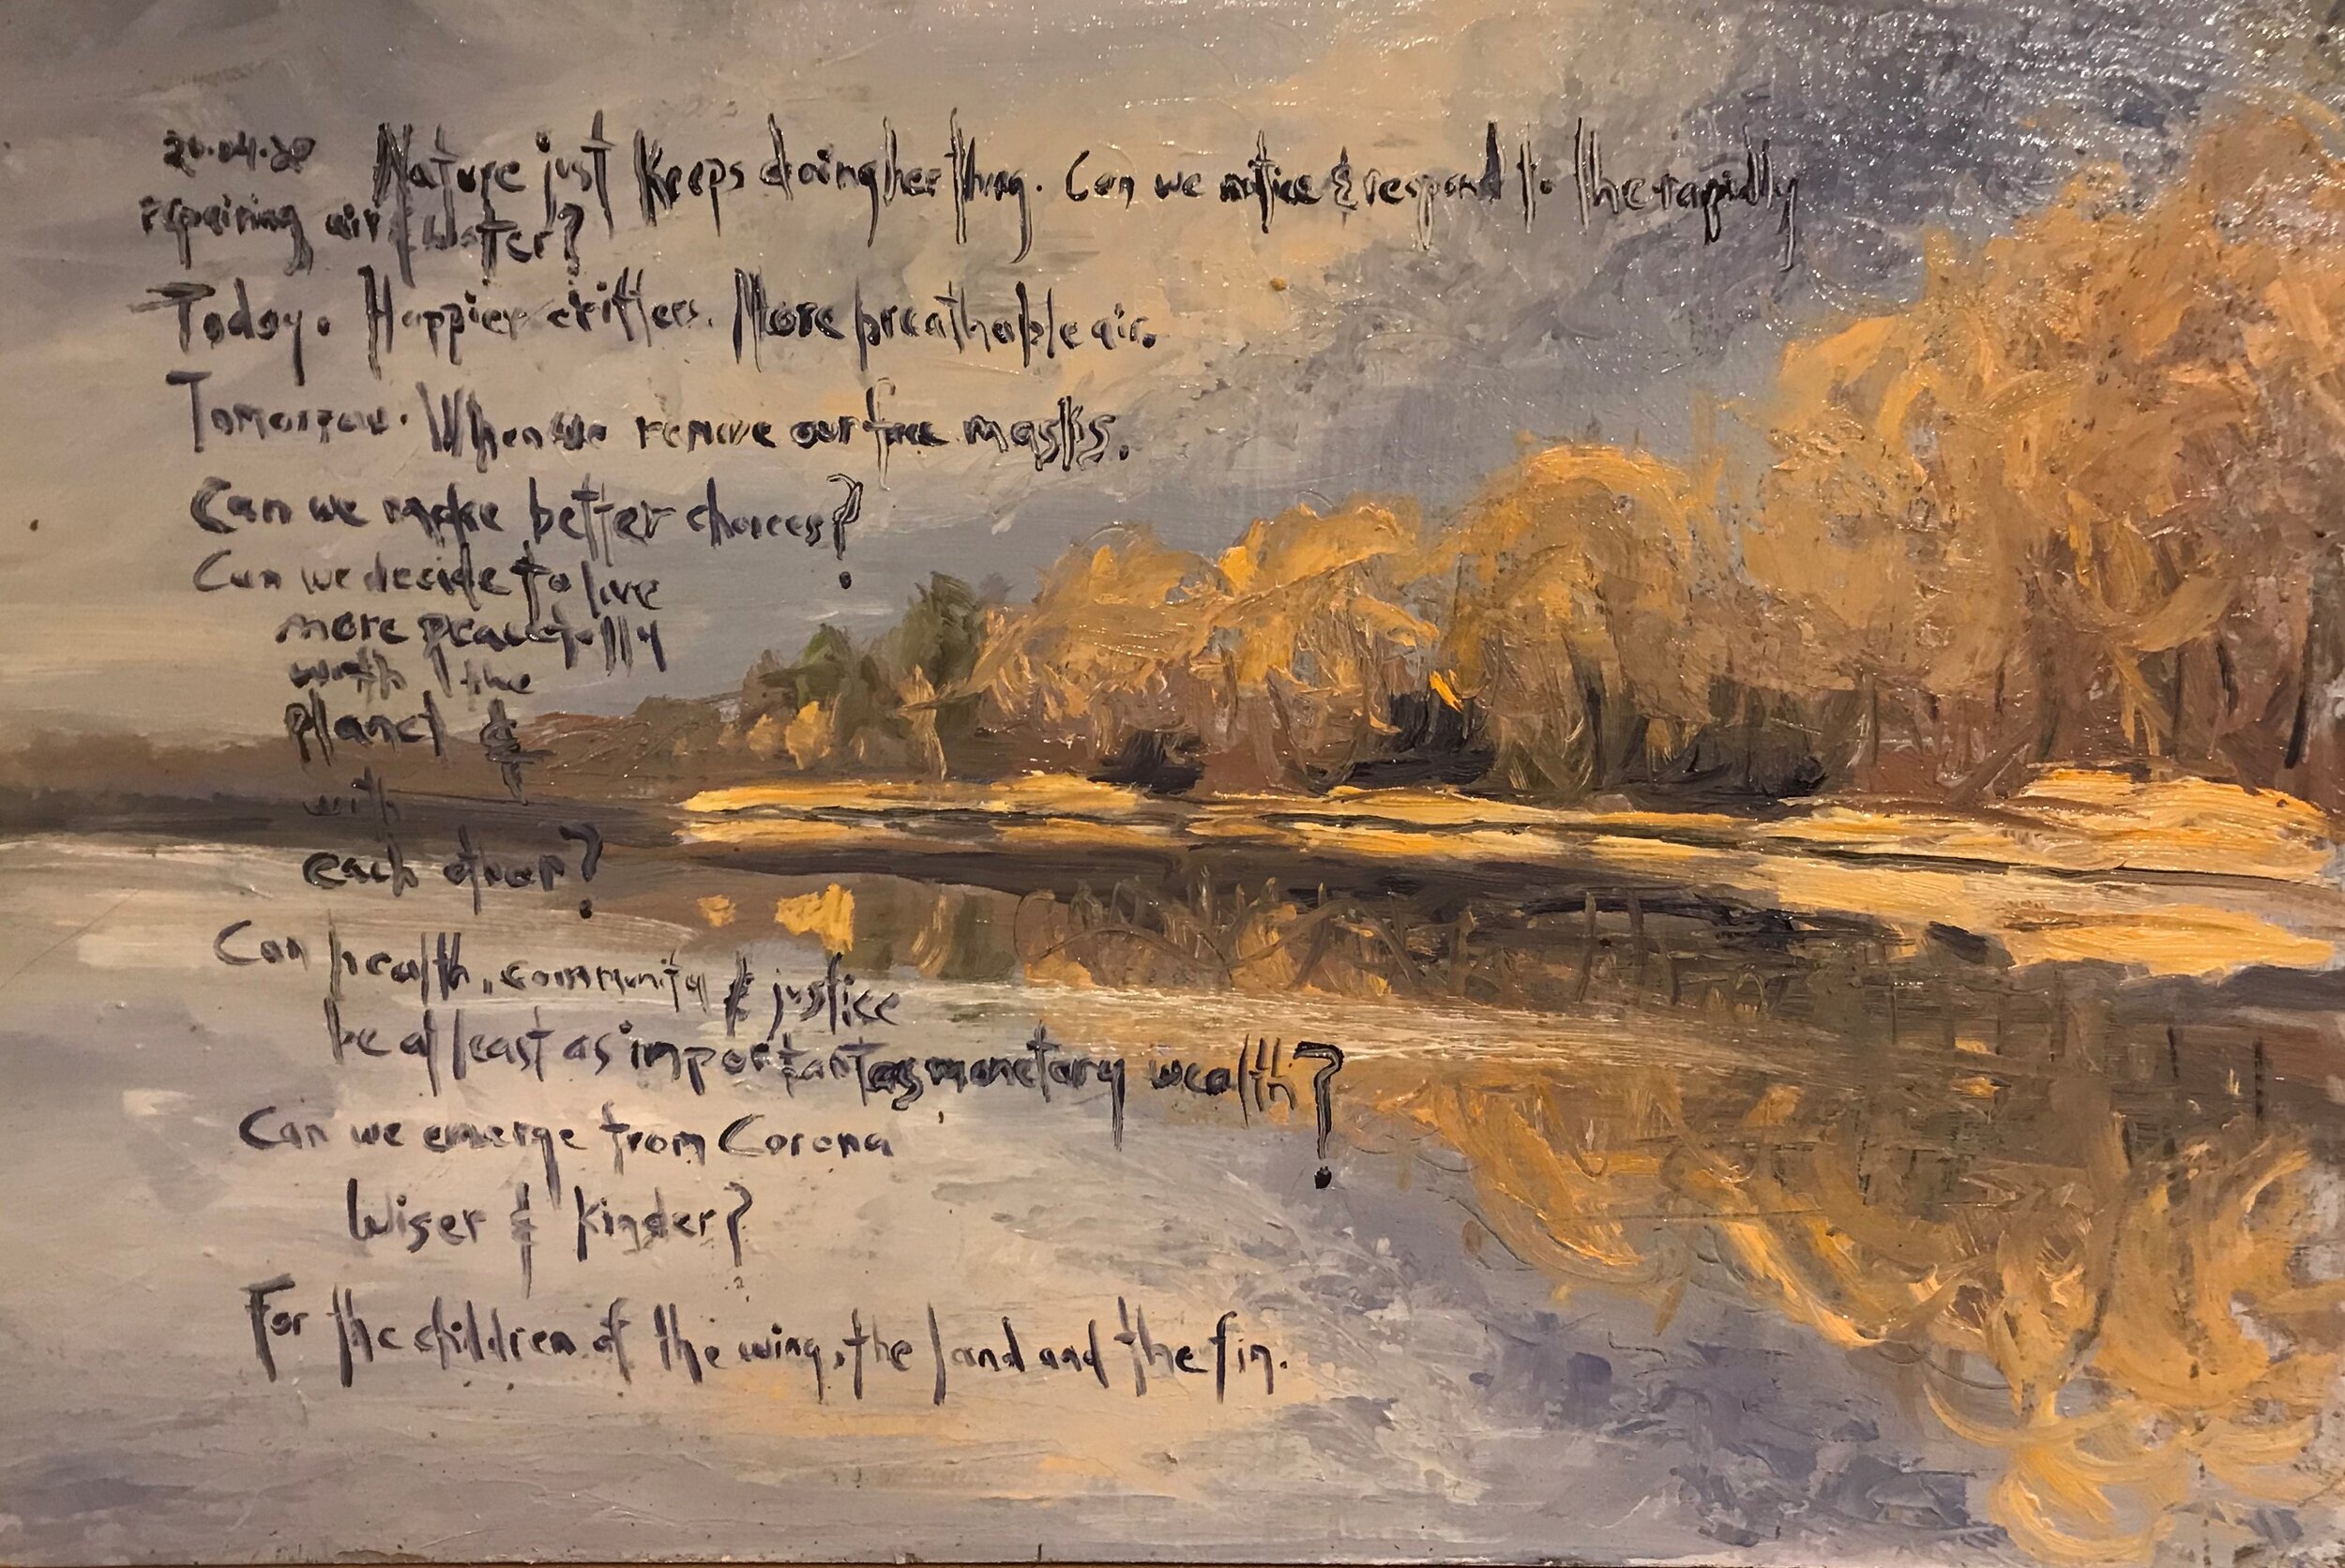 20.04.20 Nature just keeps doing her thing. Can we notice & respond to the rapidly
repairing air & water?
Today. Happier critters. More breathable air.
Tomorrow. When we remove our face masks.
Can we make better choices?
Can we decide to live
more peacefully
with the
planet &
with
each other?
Can health, community & justice
be at least as important as monetary wealth?
Can we emerge from Corona
Wiser & Kinder?
For the children of the wing, the land and the fin.